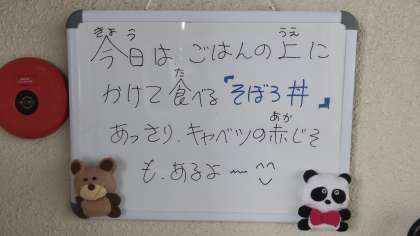 今日は ごはんの上に
かけて食べる『そぼろ丼』
あっさり、キャベツの赤じそ
も、あるよ〜^^